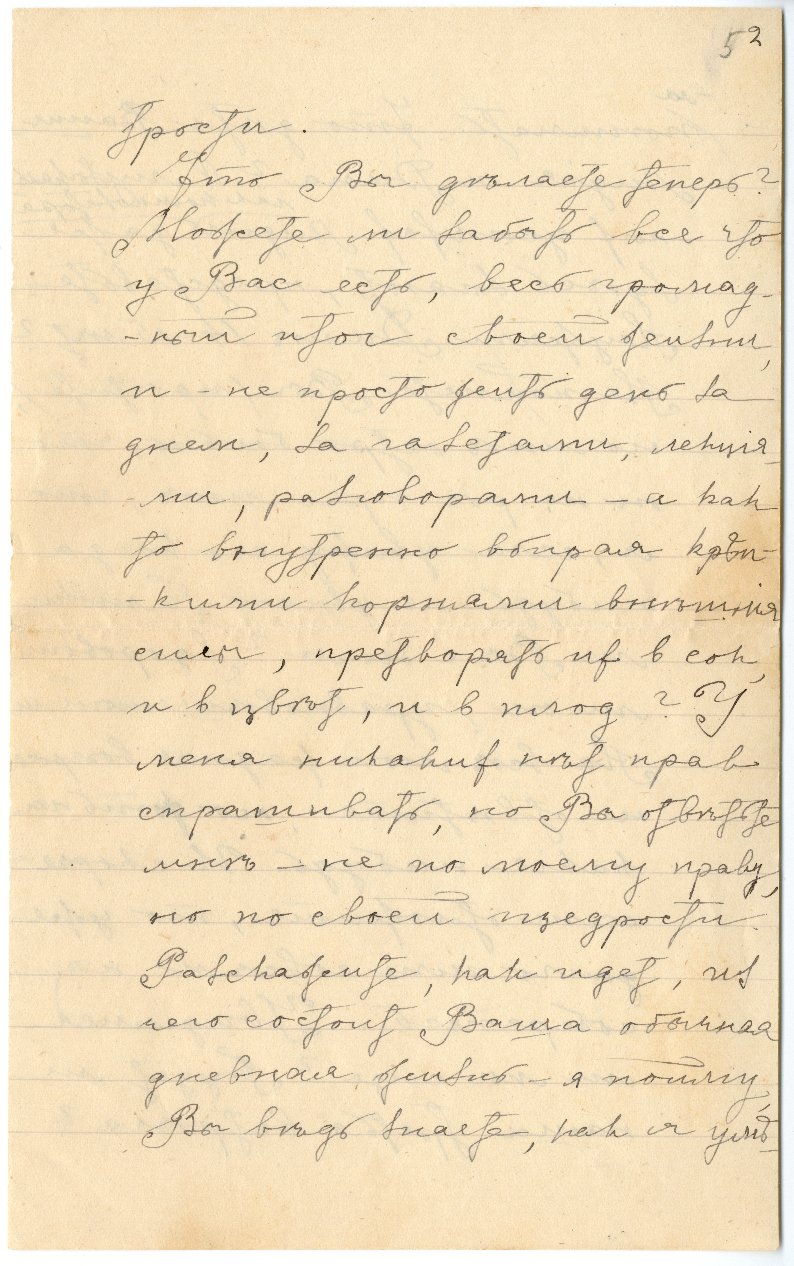 52
трости.
Что Вы дѣлаете теперь?
Можете ли забыть все что
у Вас есть, весь громад-
-ный итог своей жизни,
и - не просто жить день за
днем, за газетами, лекція-
-ми, разговорами - а как
то внутренно вбирая крѣп-
-кими корнями внѣшнія
силы, претворять их в сок,
и в цвѣт, и в плод? У
меня никаких нѣт прав
спрашивать, но Вы отвѣтьте
мнѣ - не по моему праву,
но по своей щедрости.
Разскажите, как идет, из
чего состоит Ваша обычная
дневная жизнь - я пойму,
Вы вѣдь знаете, как я умѣ-